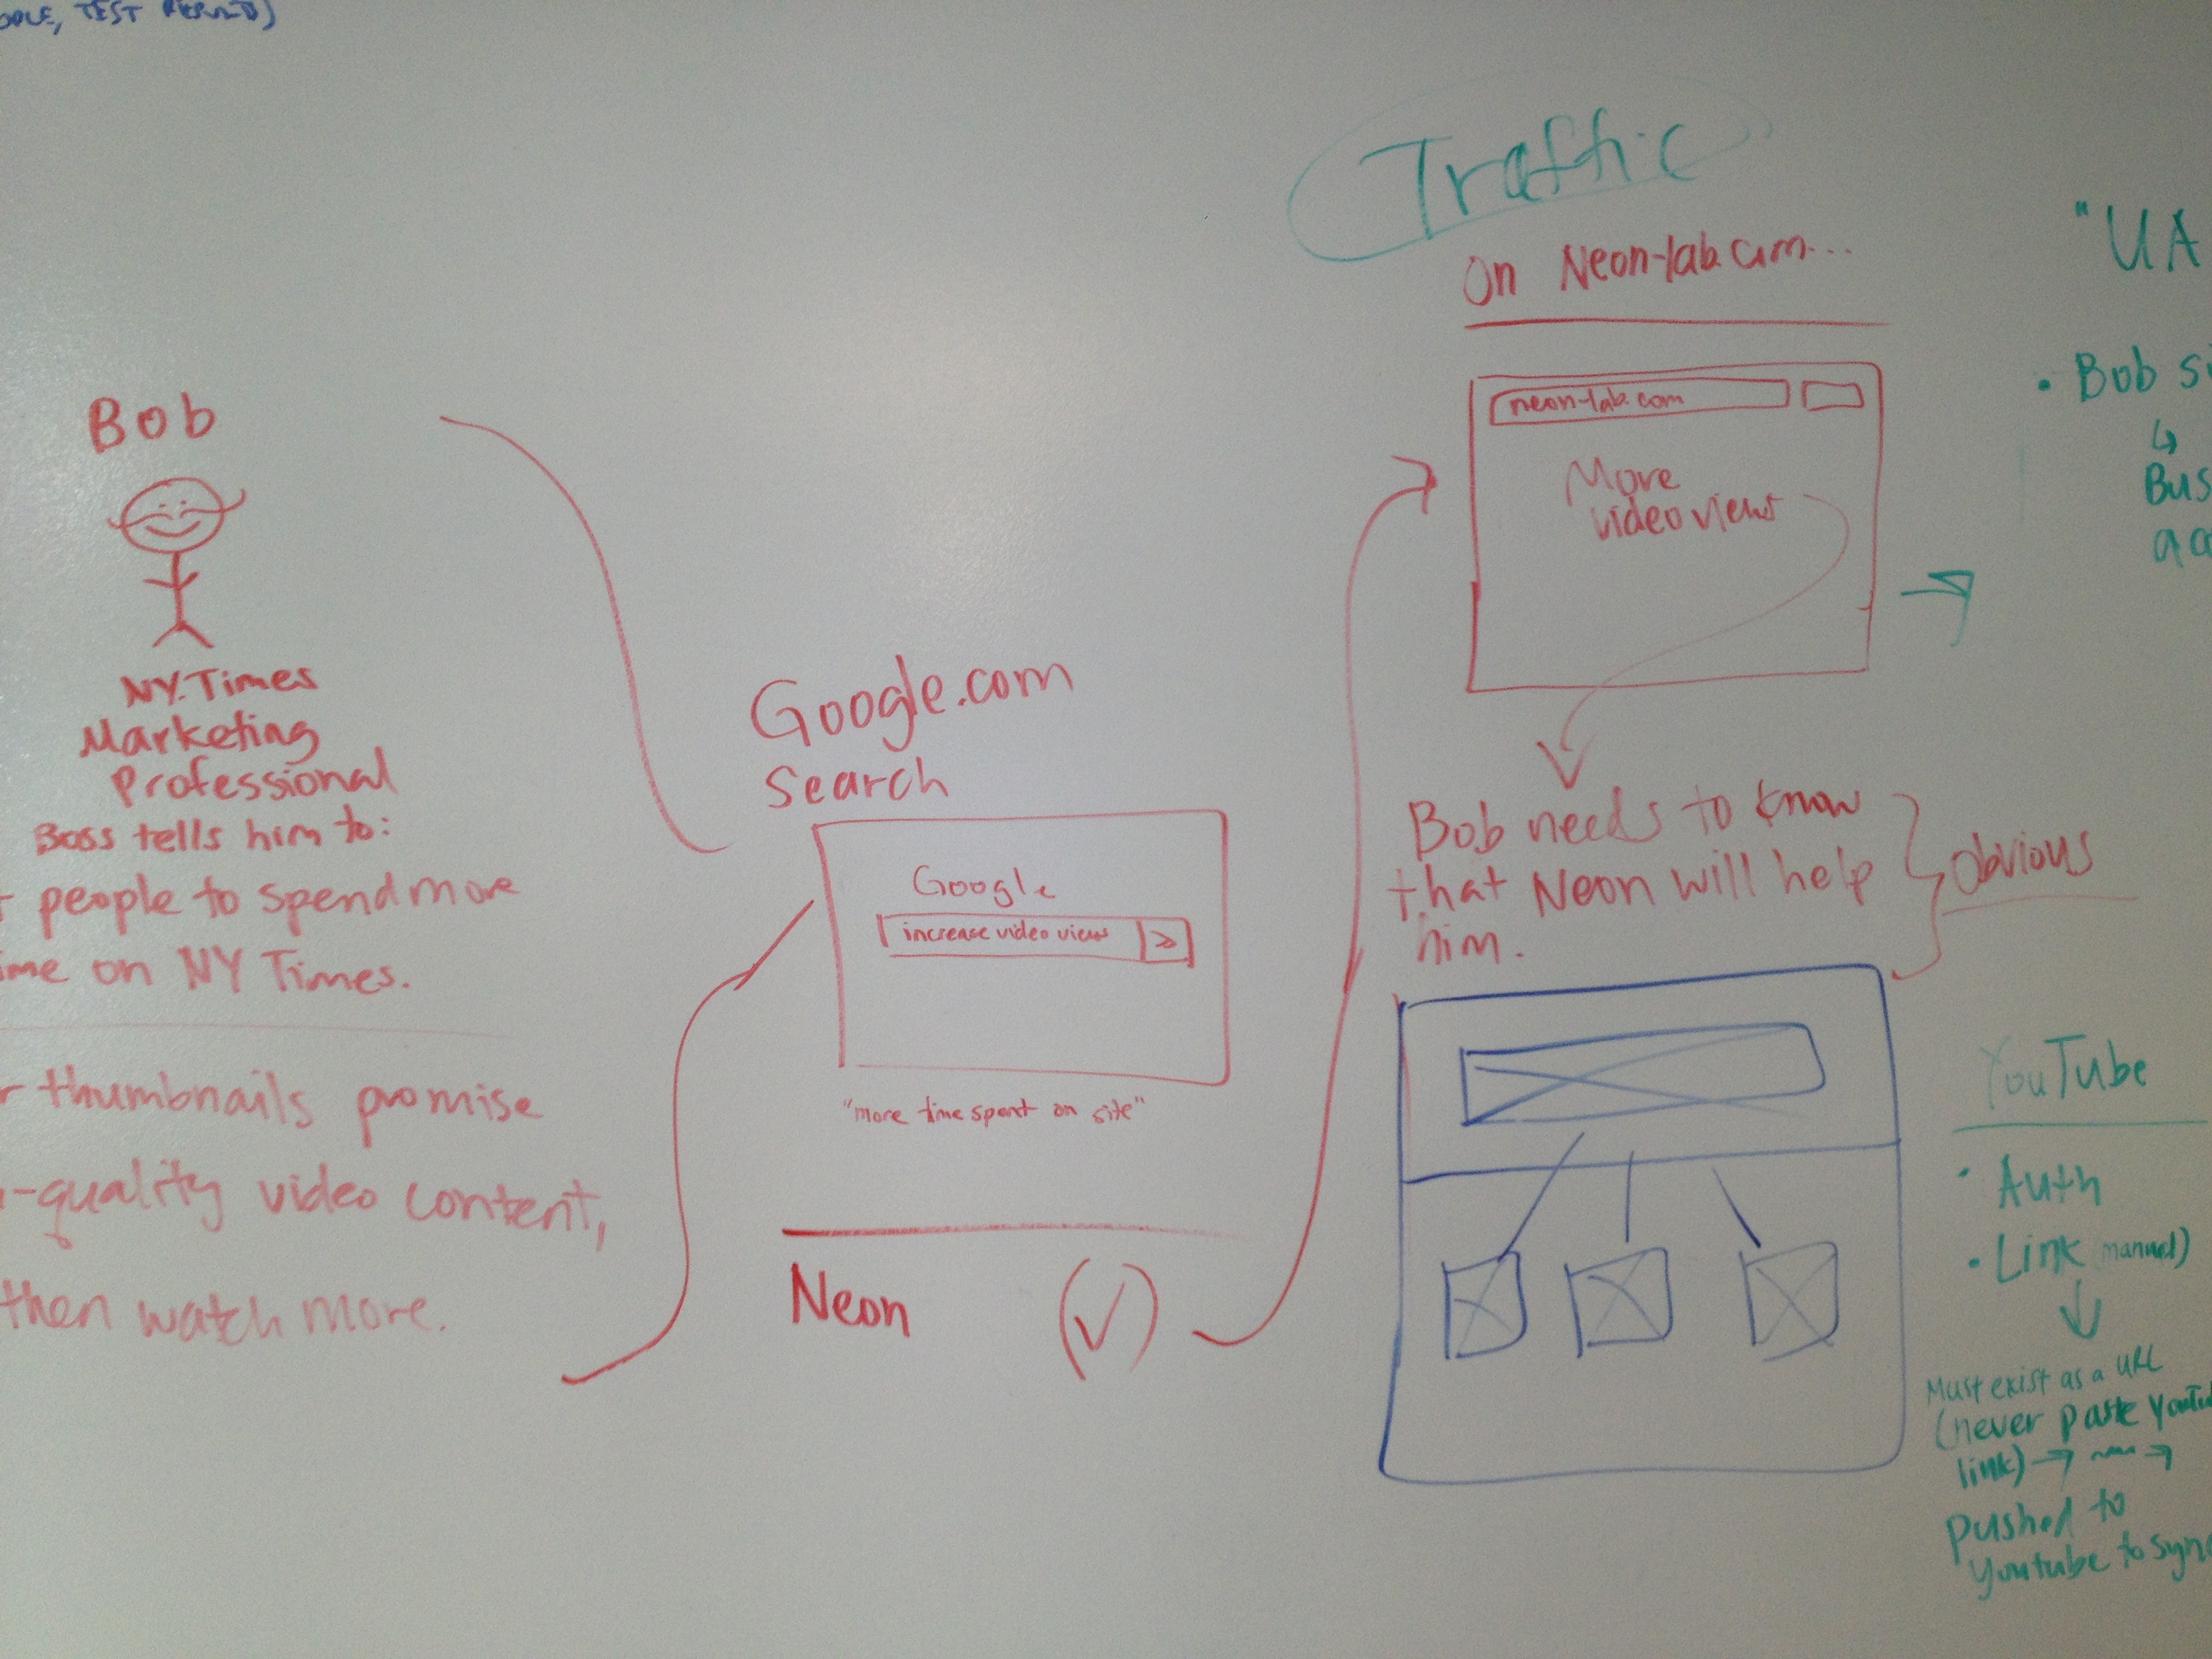 TEST RESULTS)
Bob
NY.Times
Marketing
Professional
Boss tells him to:
people to spend more
on NY Times.
thumbnails promise
-quality video content,
then watch more.
Google.com
Search
Google
increase video views
>>
"more time spent on site"
Neon
Traffic
On Neon-lab.com...
neon-lab.com
More
video views
Bob needs to know
that Neon will help
him.
obvious
"UA
• Bob si
↳
Bus
ac
YouTube
• Auth
• Link (manual)
Must exist as a URL
(never paste YouTu
link) → ~ →
pushed to
Youtube to sync